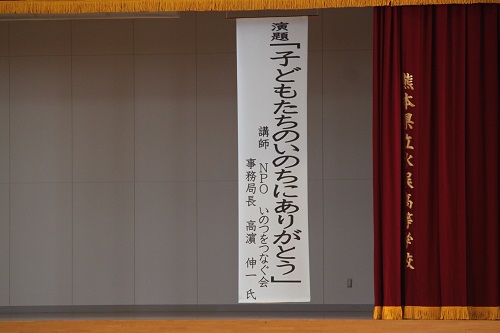 演題「子どもたちのいのちにありがとう」
講師 NPO いのちをつなぐ会
事務局長 高濱 伸一 氏
熊本県立荒尾高等学校